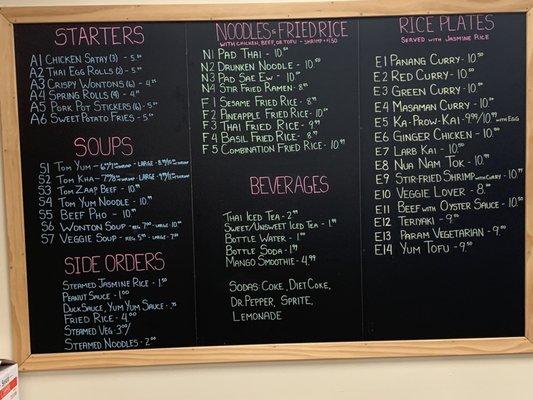 STARTERS
A1 CHICKEN SATAY (3) - 5.
A2 THAI EGG ROLLS (2) - 5.
A3 CRISPY WONTONS (6) - 4.
A4 SPRING ROLLS (4) - 4.
A5 PORK POT STICKERS (6) - 5.
A6 SWEET POTATO FRIES - 5.
SOUPS
S1 TOM YUM - LARGE -
S2 TOM KHA - LARGE -
S3 TOM ZAAP BEEF - 10.
S4 TOM YUM NOODLE - 10.
S5 BEEF PHO - 10.
S6 WONTON SOUP - REG. 7.00 - LARGE - 10.
S7 VEGGIE SOUP - REG. 5.00 - LARGE - 7.
SIDE ORDERS
STEAMED JASMINE RICE - 1.50
PEANUT SAUCE - 1.00
DUCK SAUCE, YUM YUM SAUCE -
FRIED RICE - 4.00
STEAMED VEG - 3.00/
STEAMED NOODLES - 2.00
NOODLES & FRIED RICE
WITH CHICKEN, BEEF, OR TOFU - SHRIMP +1.50
N1 PAD THAI - 10.50
N2 DRUNKEN NOODLE - 10.50
N3 PAD SAE EW - 10.50
N4 STIR FRIED RAMEN - 8.
F1 SESAME FRIED RICE - 8.
F2 PINEAPPLE FRIED RICE - 10.
F3 THAI FRIED RICE - 9.
F4 BASIL FRIED RICE - 8.
F5 COMBINATION FRIED RICE - 10.
BEVERAGES
THAI ICED TEA - 2.
SWEET/UNSWEET ICED TEA - 1.
BOTTLE WATER - 1.
BOTTLE SODA - 1.
MANGO SMOOTHIE - 4.99
SODAS: COKE, DIET COKE,
DR. PEPPER, SPRITE,
LEMONADE
RICE PLATES
SERVED WITH JASMINE RICE
E1 PANANG CURRY - 10.50
E2 RED CURRY - 10.50
E3 GREEN CURRY - 10.50
E4 MASAMAN CURRY - 10.50
E5 KA-PROW-KAI - WITH EGG
E6 GINGER CHICKEN - 10.
E7 LARB KAI - 10.
E8 NUA NAM TOK - 10.
E9 STIR-FRIED SHRIMP WITH CURRY - 10.
E10 VEGGIE LOVER - 8.
E11 BEEF WITH OYSTER SAUCE - 10.50
E12 TERIYAKI - 9.50
E13 PARAM VEGETARIAN - 9.50
E14 YUM TOFU - 9.50